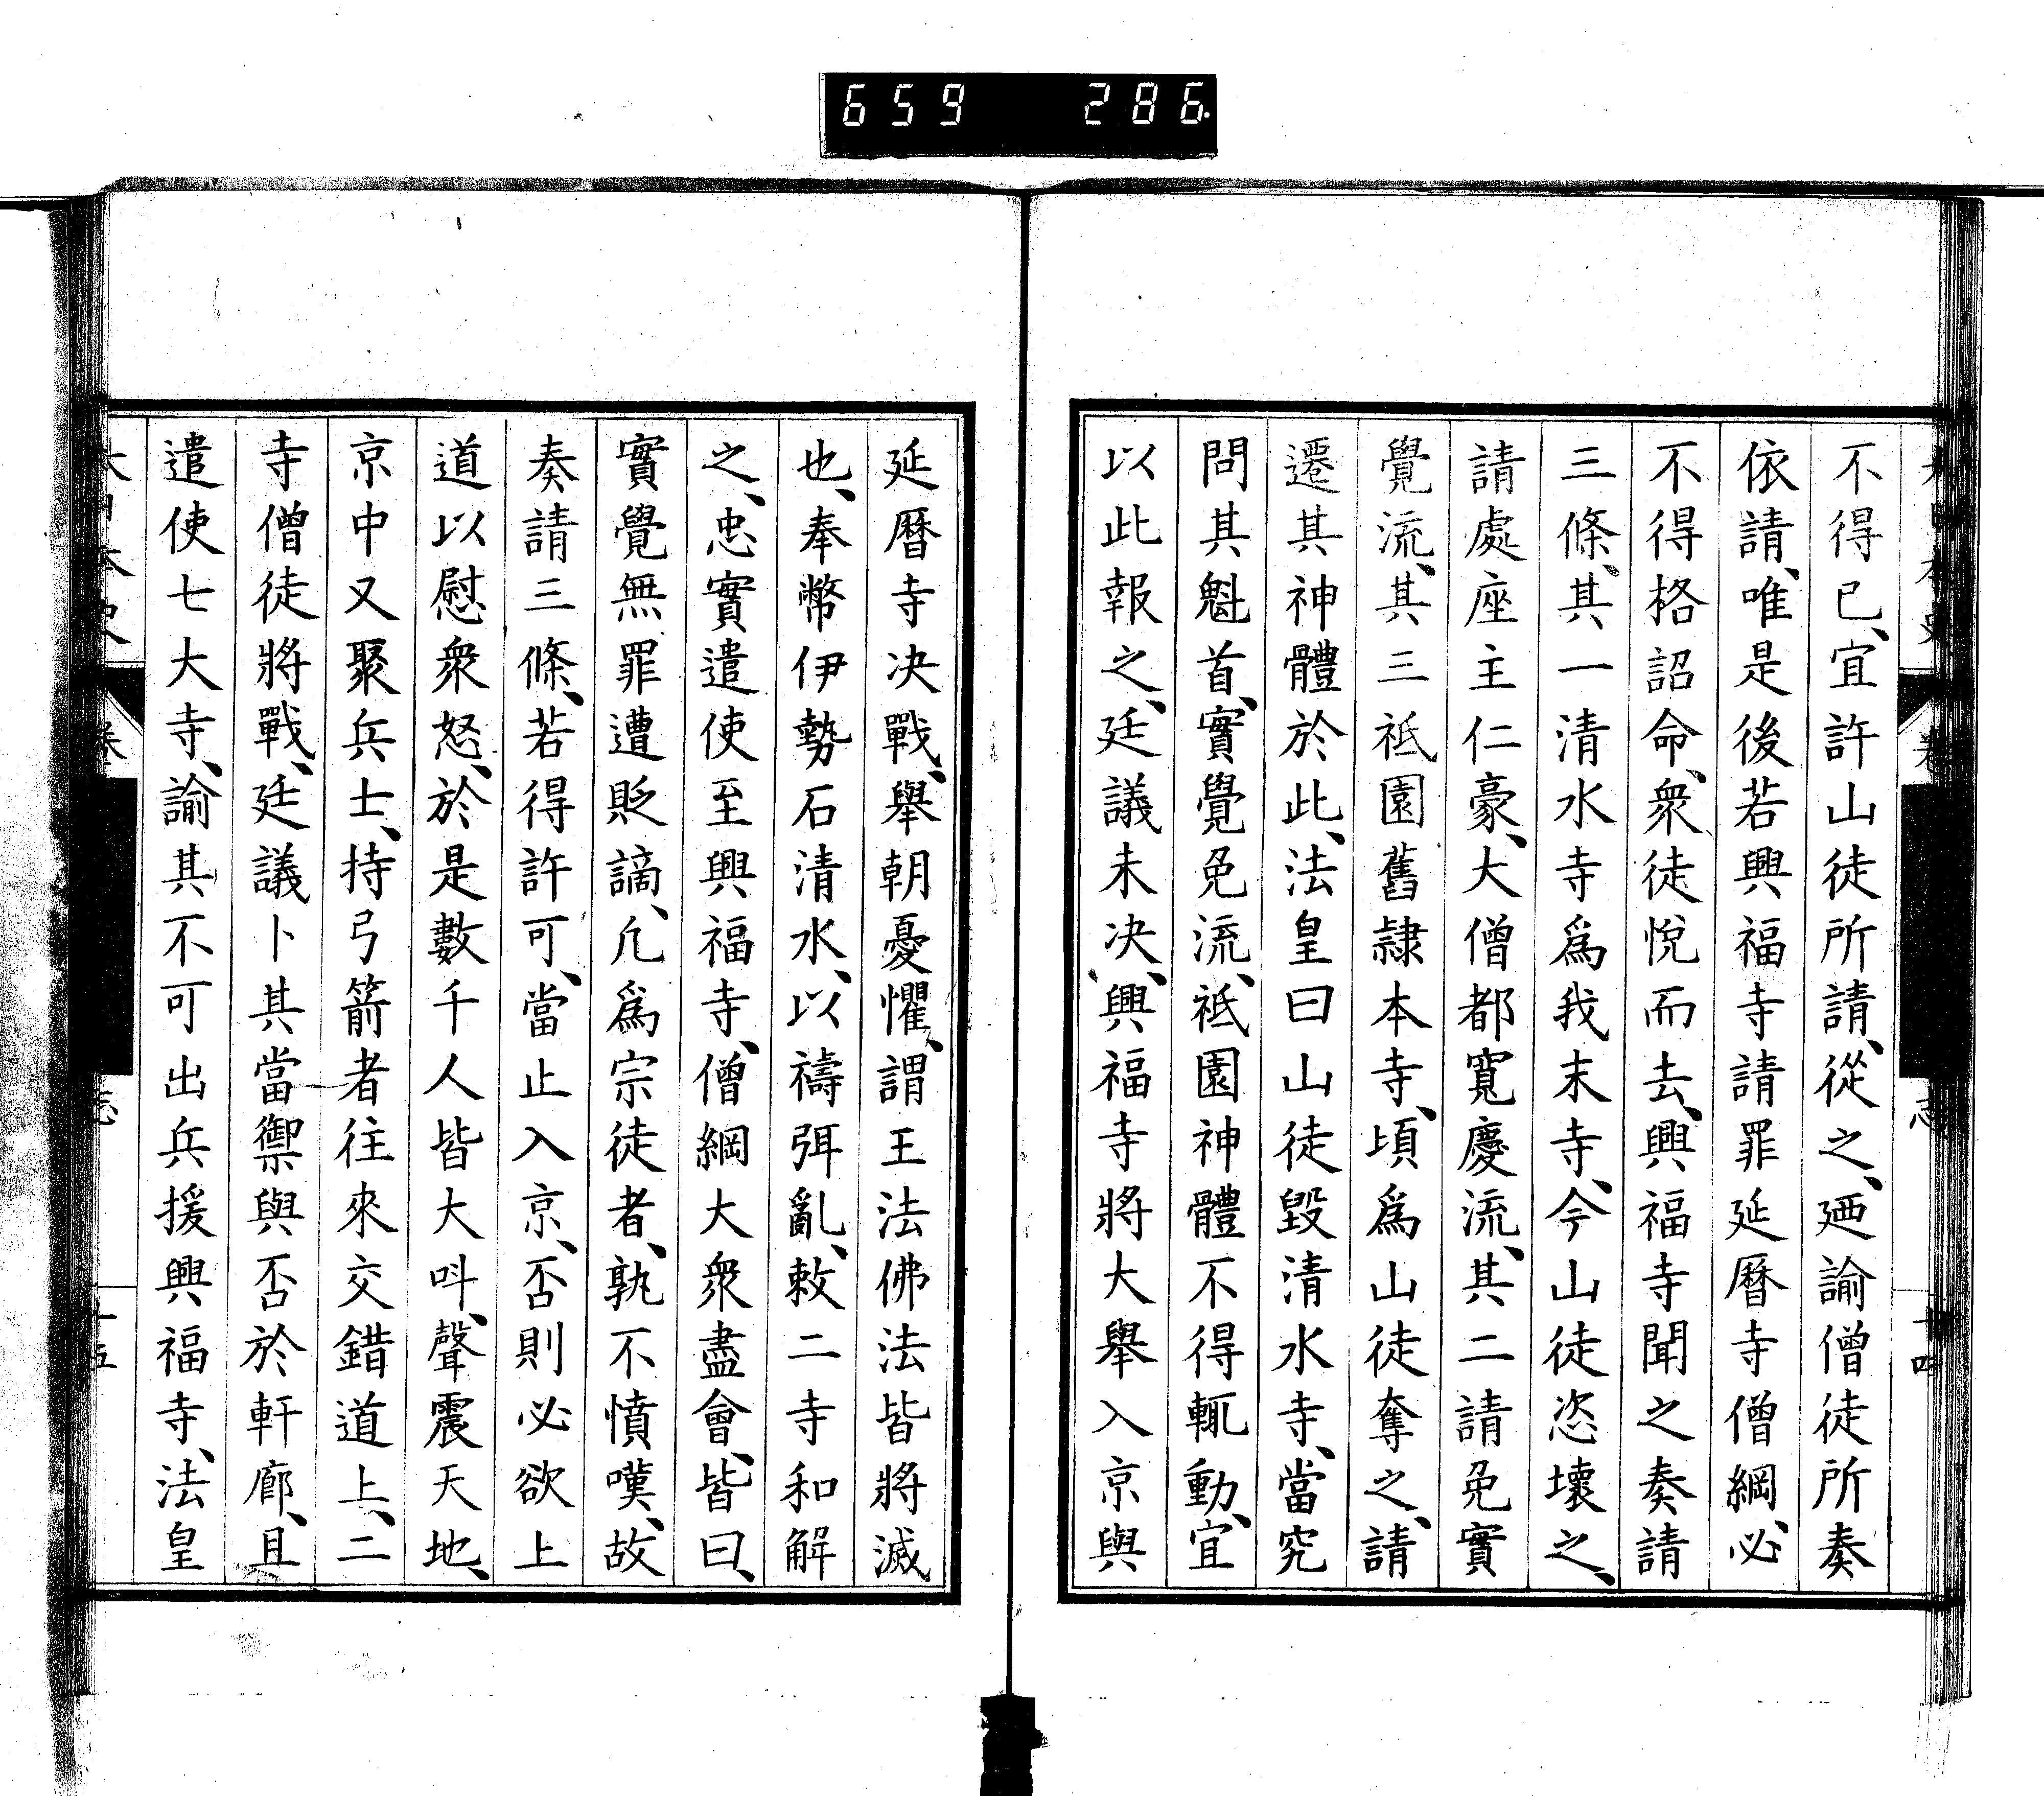 659 286
不得已、宜許山徒所請、從之、廼諭僧徒所奏
依請、唯是後若興福寺請罪延曆寺僧綱、必
不得格詔命、衆徒悅而去、興福寺聞之奏請
三條、其一清水寺爲我末寺、今山徒恣壞之、
請處座主仁豪、大僧都寬慶流、其二請免實
覺流、其三祗園舊隸本寺、頃爲山徒奪之、請
遷其神體於此、法皇曰山徒毀清水寺、當究
問其魁首、實覺免流、祗園神體不得輒動、宜
以此報之、廷議未决、興福寺將大舉入京與
延曆寺决戰、舉朝憂懼、謂王法佛法皆將滅
也、奉幣伊勢石清水、以禱弭亂、敕二寺和解
之、忠實遣使至興福寺、僧綱大衆盡會、皆曰、
實覺無罪遭貶謫、凢爲宗徒者、孰不憤嘆、故
奏請三條、若得許可、當止入京、否則必欲上
道以慰衆怒、於是數千人皆大呌、聲震天地、
京中又聚兵士、持弓箭者往來交錯道上、二
寺僧徒將戰、廷議卜其當禦與否於軒廊、且
遣使七大寺、諭其不可出兵援興福寺、法皇